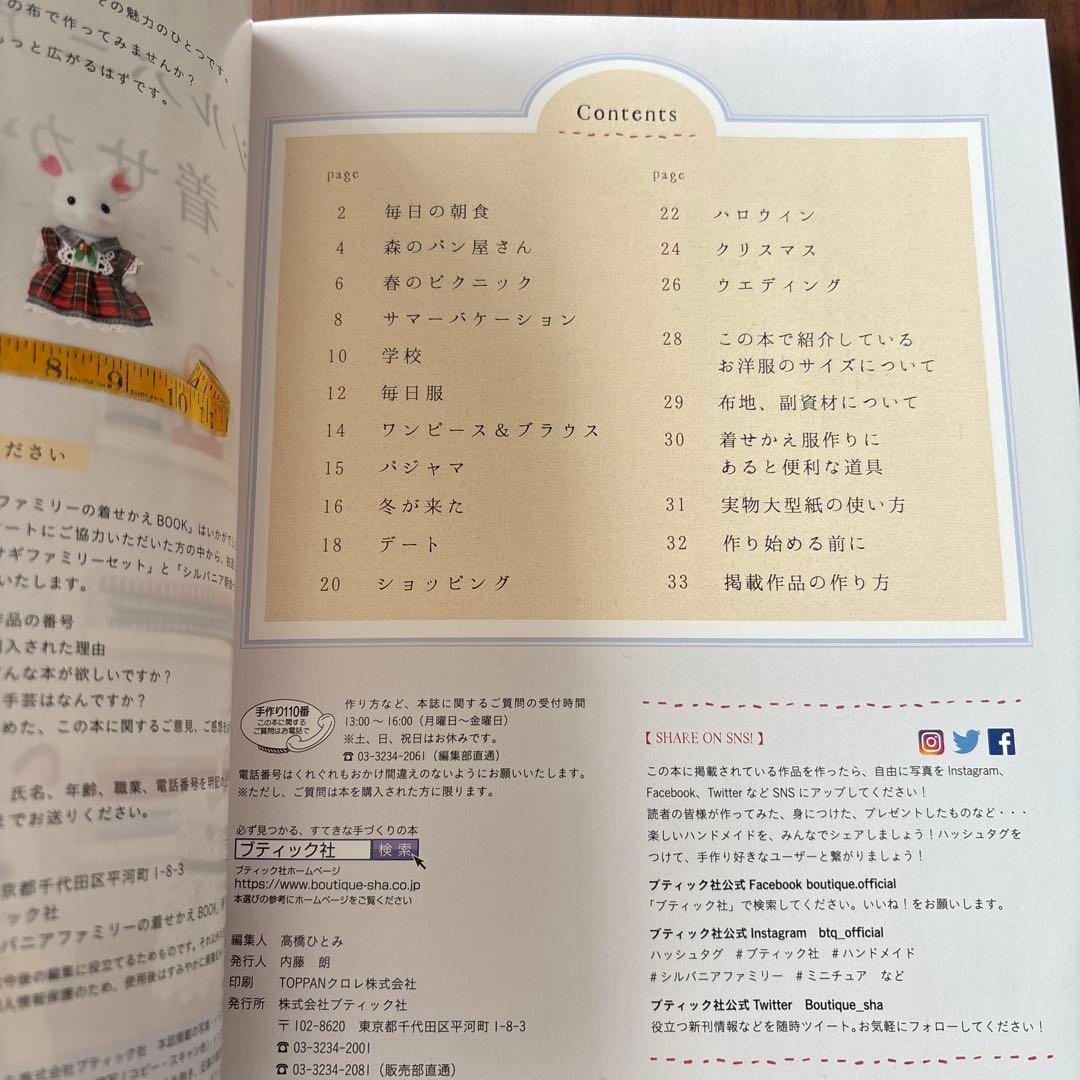 その魅力のひとつです。
の布で作ってみませんか?
もっと広がるはずです。
8 9 10 11
ださい
ファミリーの着せかえBOOK」はいかがでし
ートにご協力いただいた方の中から、抽
サギファミリーセット」と「シルバニア
いたします。
作品の番号
購入された理由
どんな本が欲しいですか?
手芸はなんですか?
めた、この本に関するご意見、ご感想を
氏名、年齢、職業、電話番号を明記の
までお送りください。
京都千代田区平河町1-8-3
ィック社
ルバニアファミリーの着せかえBOOK」
は今後の編集に役立てるためのものです。それ以外の
個人情報保護のため、使用後はすみやかに
株式会社ブティック社 本誌掲載の写真・イ
Contents
page
2 毎日の朝食
4 森のパン屋さん
6 春のピクニック
8 サマーバケーション
10 学校
12 毎日服
14 ワンピース&ブラウス
15 パジャマ
16 冬が来た
18 デート
20 ショッピング
page
22 ハロウィン
24 クリスマス
26 ウエディング
28 この本で紹介している
お洋服のサイズについて
29 布地、副資材について
30 着せかえ服作りに
あると便利な道具
31 実物大型紙の使い方
32 作り始める前に
33 掲載作品の作り方
手作り110番
この本に関する
ご質問はお電話で
作り方など、本誌に関するご質問の受付時間
13:00~16:00(月曜日~金曜日)
※土、日、祝日はお休みです。
☎03-3234-2061(編集部直通)
電話番号はくれぐれもおかけ間違えのないようにお願いいたします。
※ただし、ご質問は本を購入された方に限ります。
必ず見つかる、すてきな手づくりの本
ブティック社 検索
ブティック社ホームページ
https://www.boutique-sha.co.jp
本選びの参考にホームページをご覧ください
編集人 高橋ひとみ
発行人 内藤 朗
印刷 TOPPANクロレ株式会社
発行所 株式会社ブティック社
〒102-8620 東京都千代田区平河町1-8-3
☎03-3234-2001
☎03-3234-2081(販売部直通)
【SHARE ON SNS!】
この本に掲載されている作品を作ったら、自由に写真をInstagram、
Facebook、TwitterなどSNSにアップしてください!
読者の皆様が作ってみた、身につけた、プレゼントしたものなど・・・
楽しいハンドメイドを、みんなでシェアしましょう!ハッシュタグを
つけて、手作り好きなユーザーと繋がりましょう!
ブティック社公式 Facebook boutique.official
「ブティック社」で検索してください。いいね!をお願いします。
ブティック社公式 Instagram btq_official
ハッシュタグ #ブティック社 #ハンドメイド
#シルバニアファミリー #ミニチュア など
ブティック社公式 Twitter Boutique_sha
役立つ新刊情報などを随時ツイート。お気軽にフォローしてください!